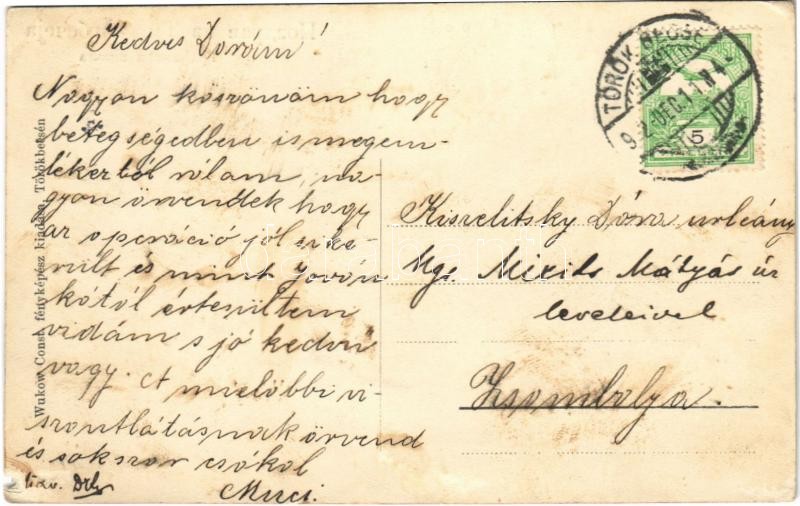 Kedves Dórám!
Nagyon köszönöm hogy
betegségedben is megem-
lékeztél rólam, na-
gyon örvendek hogy
az operáció jól sike-
rült és mint Jován
kótól értesültem
vidám s jó kedvű
vagy. A mielőbbi vi-
szontlátásnak örvend
és sokszor csókol
Muci.
Wukow Const. fényképész kiadása, Törökbecsén
TÖRÖK BECSE
5
Kiszelitsky Dóra urleány
Mátyás úr
leveleivel
Zsombolya.